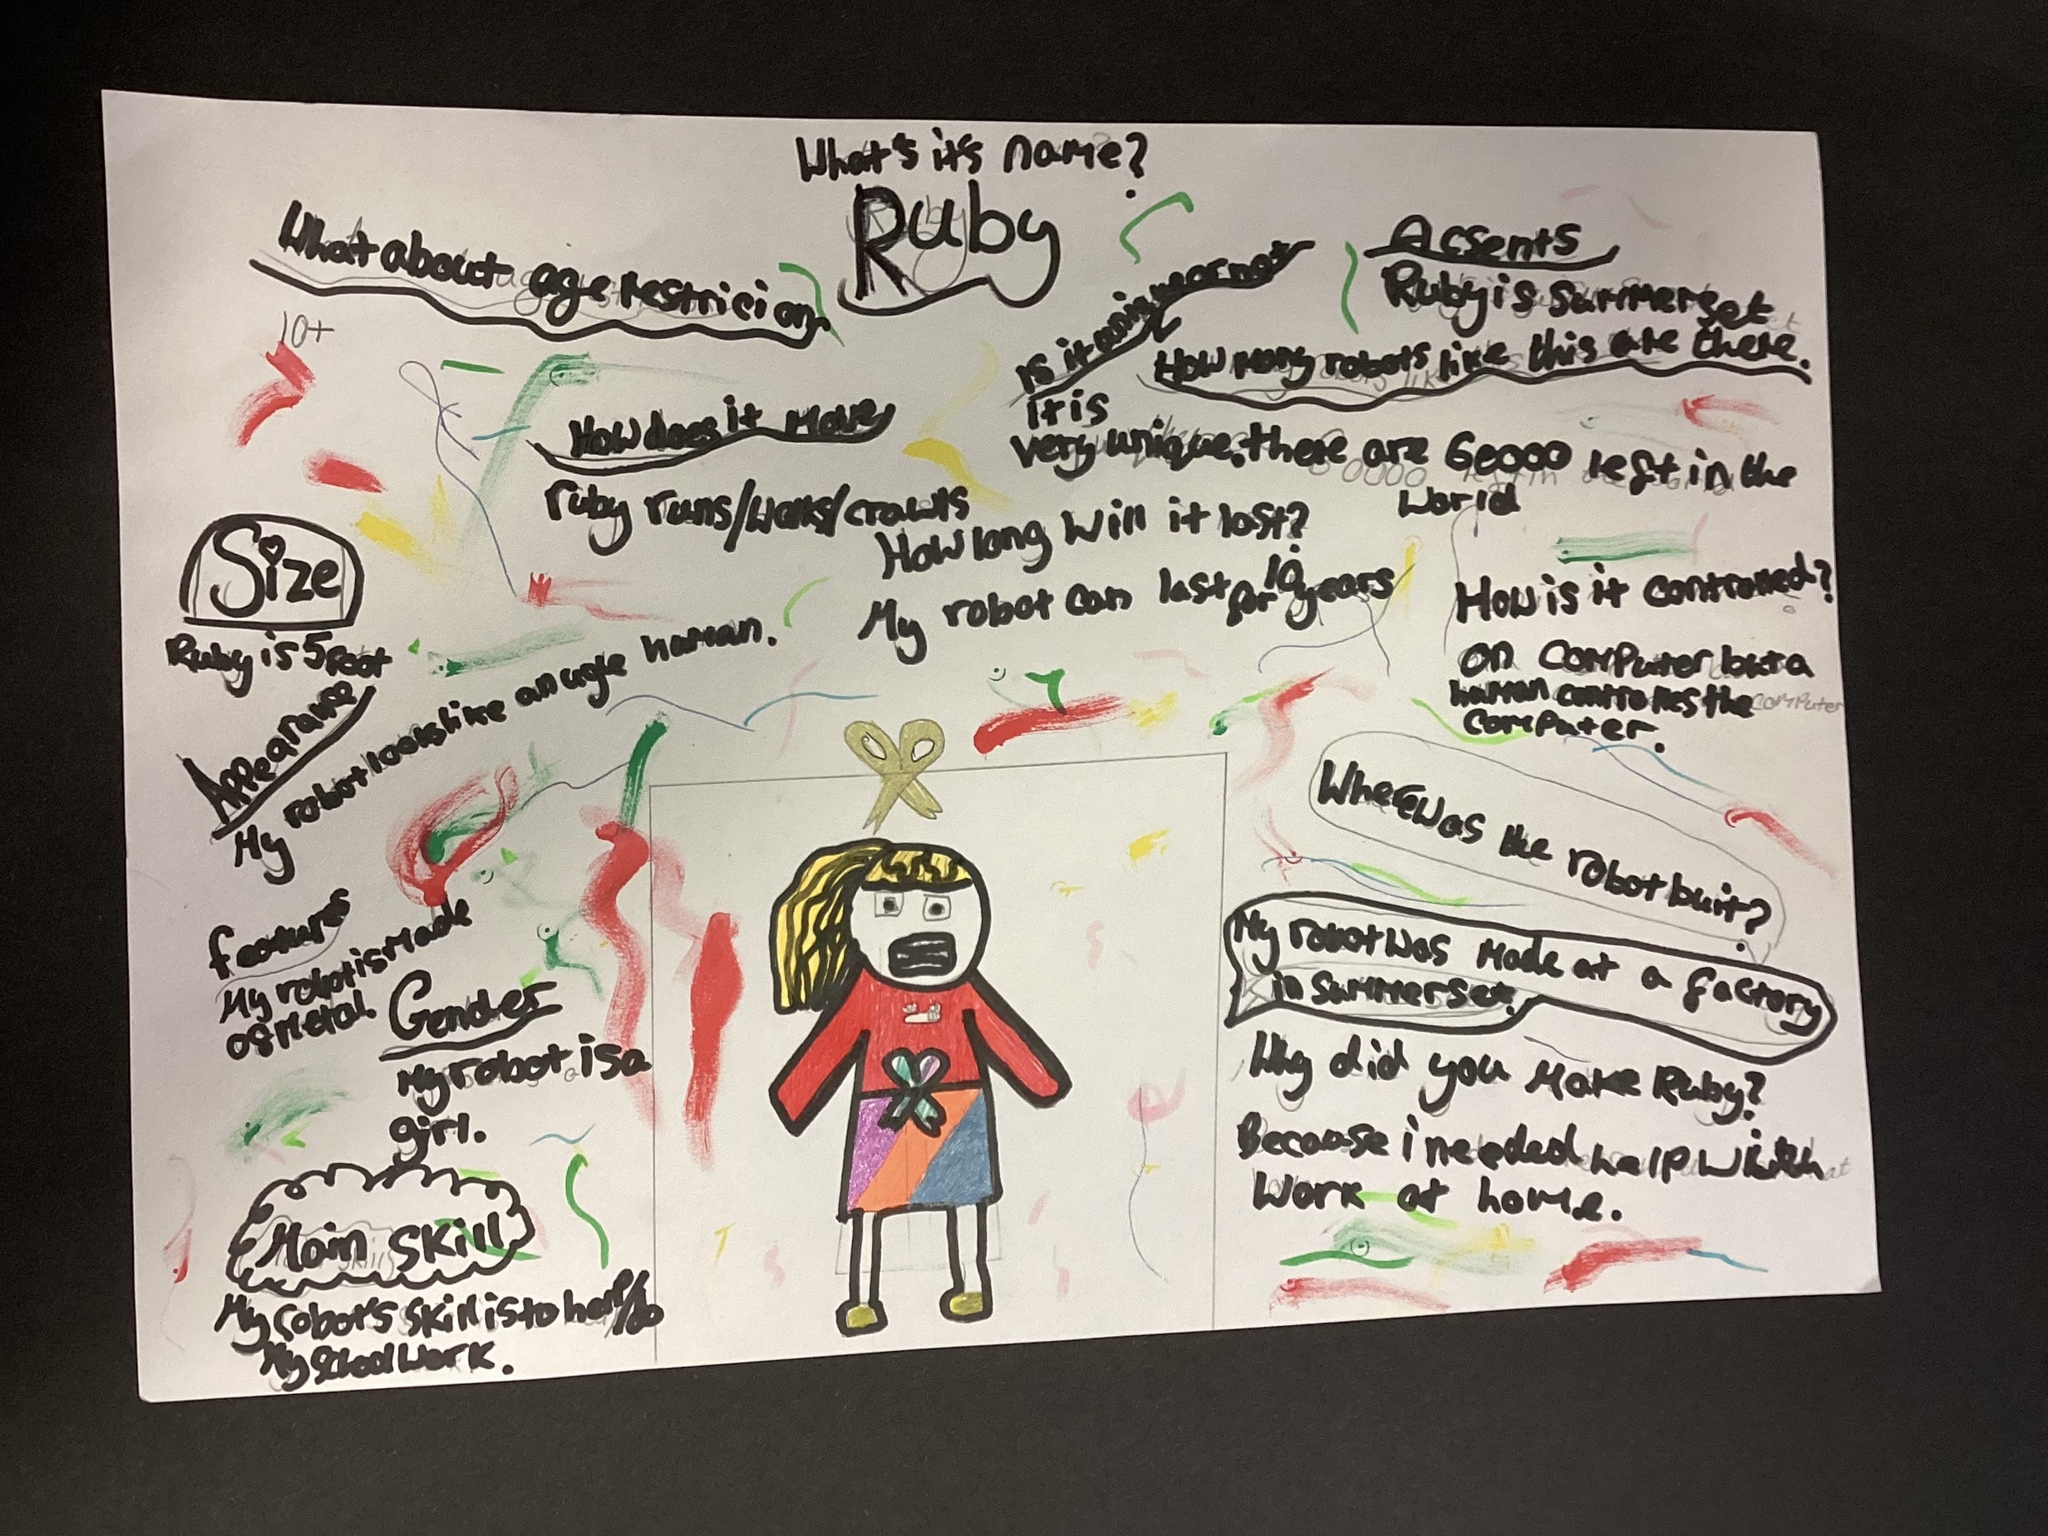 What's it's name?
Ruby
What about age restricion
10+
How does it move
ruby runs/walks/crawls
Is it unique or not
it is
very unique. there are 60000 left in the
world
Acsents
Ruby is sammerset
How many robots like this are there.
How long will it last?
My robot can last for 10 years
How is it controlled?
on computer but a
human controlles the
computer.
Size
Ruby is 5 foot
Appearanse
My robot looks like an ugle human.
features
My robot is made
of metal.
Gender
My robot is a
girl.
Main skill
My robot's skill is to help/do
My school work.
Where was the robot buit?
My robot was made at a factory
in Summerset.
Why did you make Ruby?
Because i needed help with
work at home.